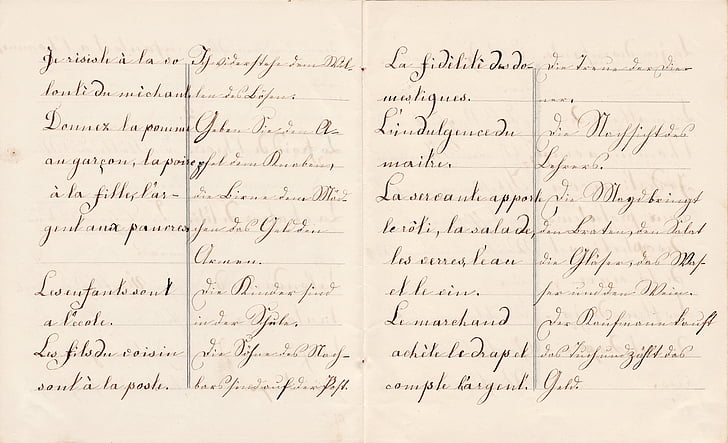 Je risish à la vo
lonté du michant
Donnez la pomme
au garçon, la poire,
à la fille, l'ar-
gent aux pauvres
Les enfants sont
a l'ecole.
Les fils du voisin
sont à la poste.
Ich widerstehe dem Wil-
len des Bösen.
Geben Sie den A-
pfel dem Knaben,
die Birne dem Mäd-
chen das Geld den
Armen.
Die Kinder sind
in der Schule.
Die Söhne des Nach-
bars sind auf der Post.
La fidélité des do-
mestiques.
L'indulgence du
maitre.
La servante apporte
le rôti, la salade,
les verres, l'eau
et le vin.
Le marchand
achète le drap et
compte l'argent.
Die Treue der Die-
ner.
Die Nachsicht des
Lehrers.
Die Magd bringt
den Braten, den Salat
die Gläser, das Was-
ser und den Wein.
Der Kaufmann kauft
das Tuch und zählt das
Geld.